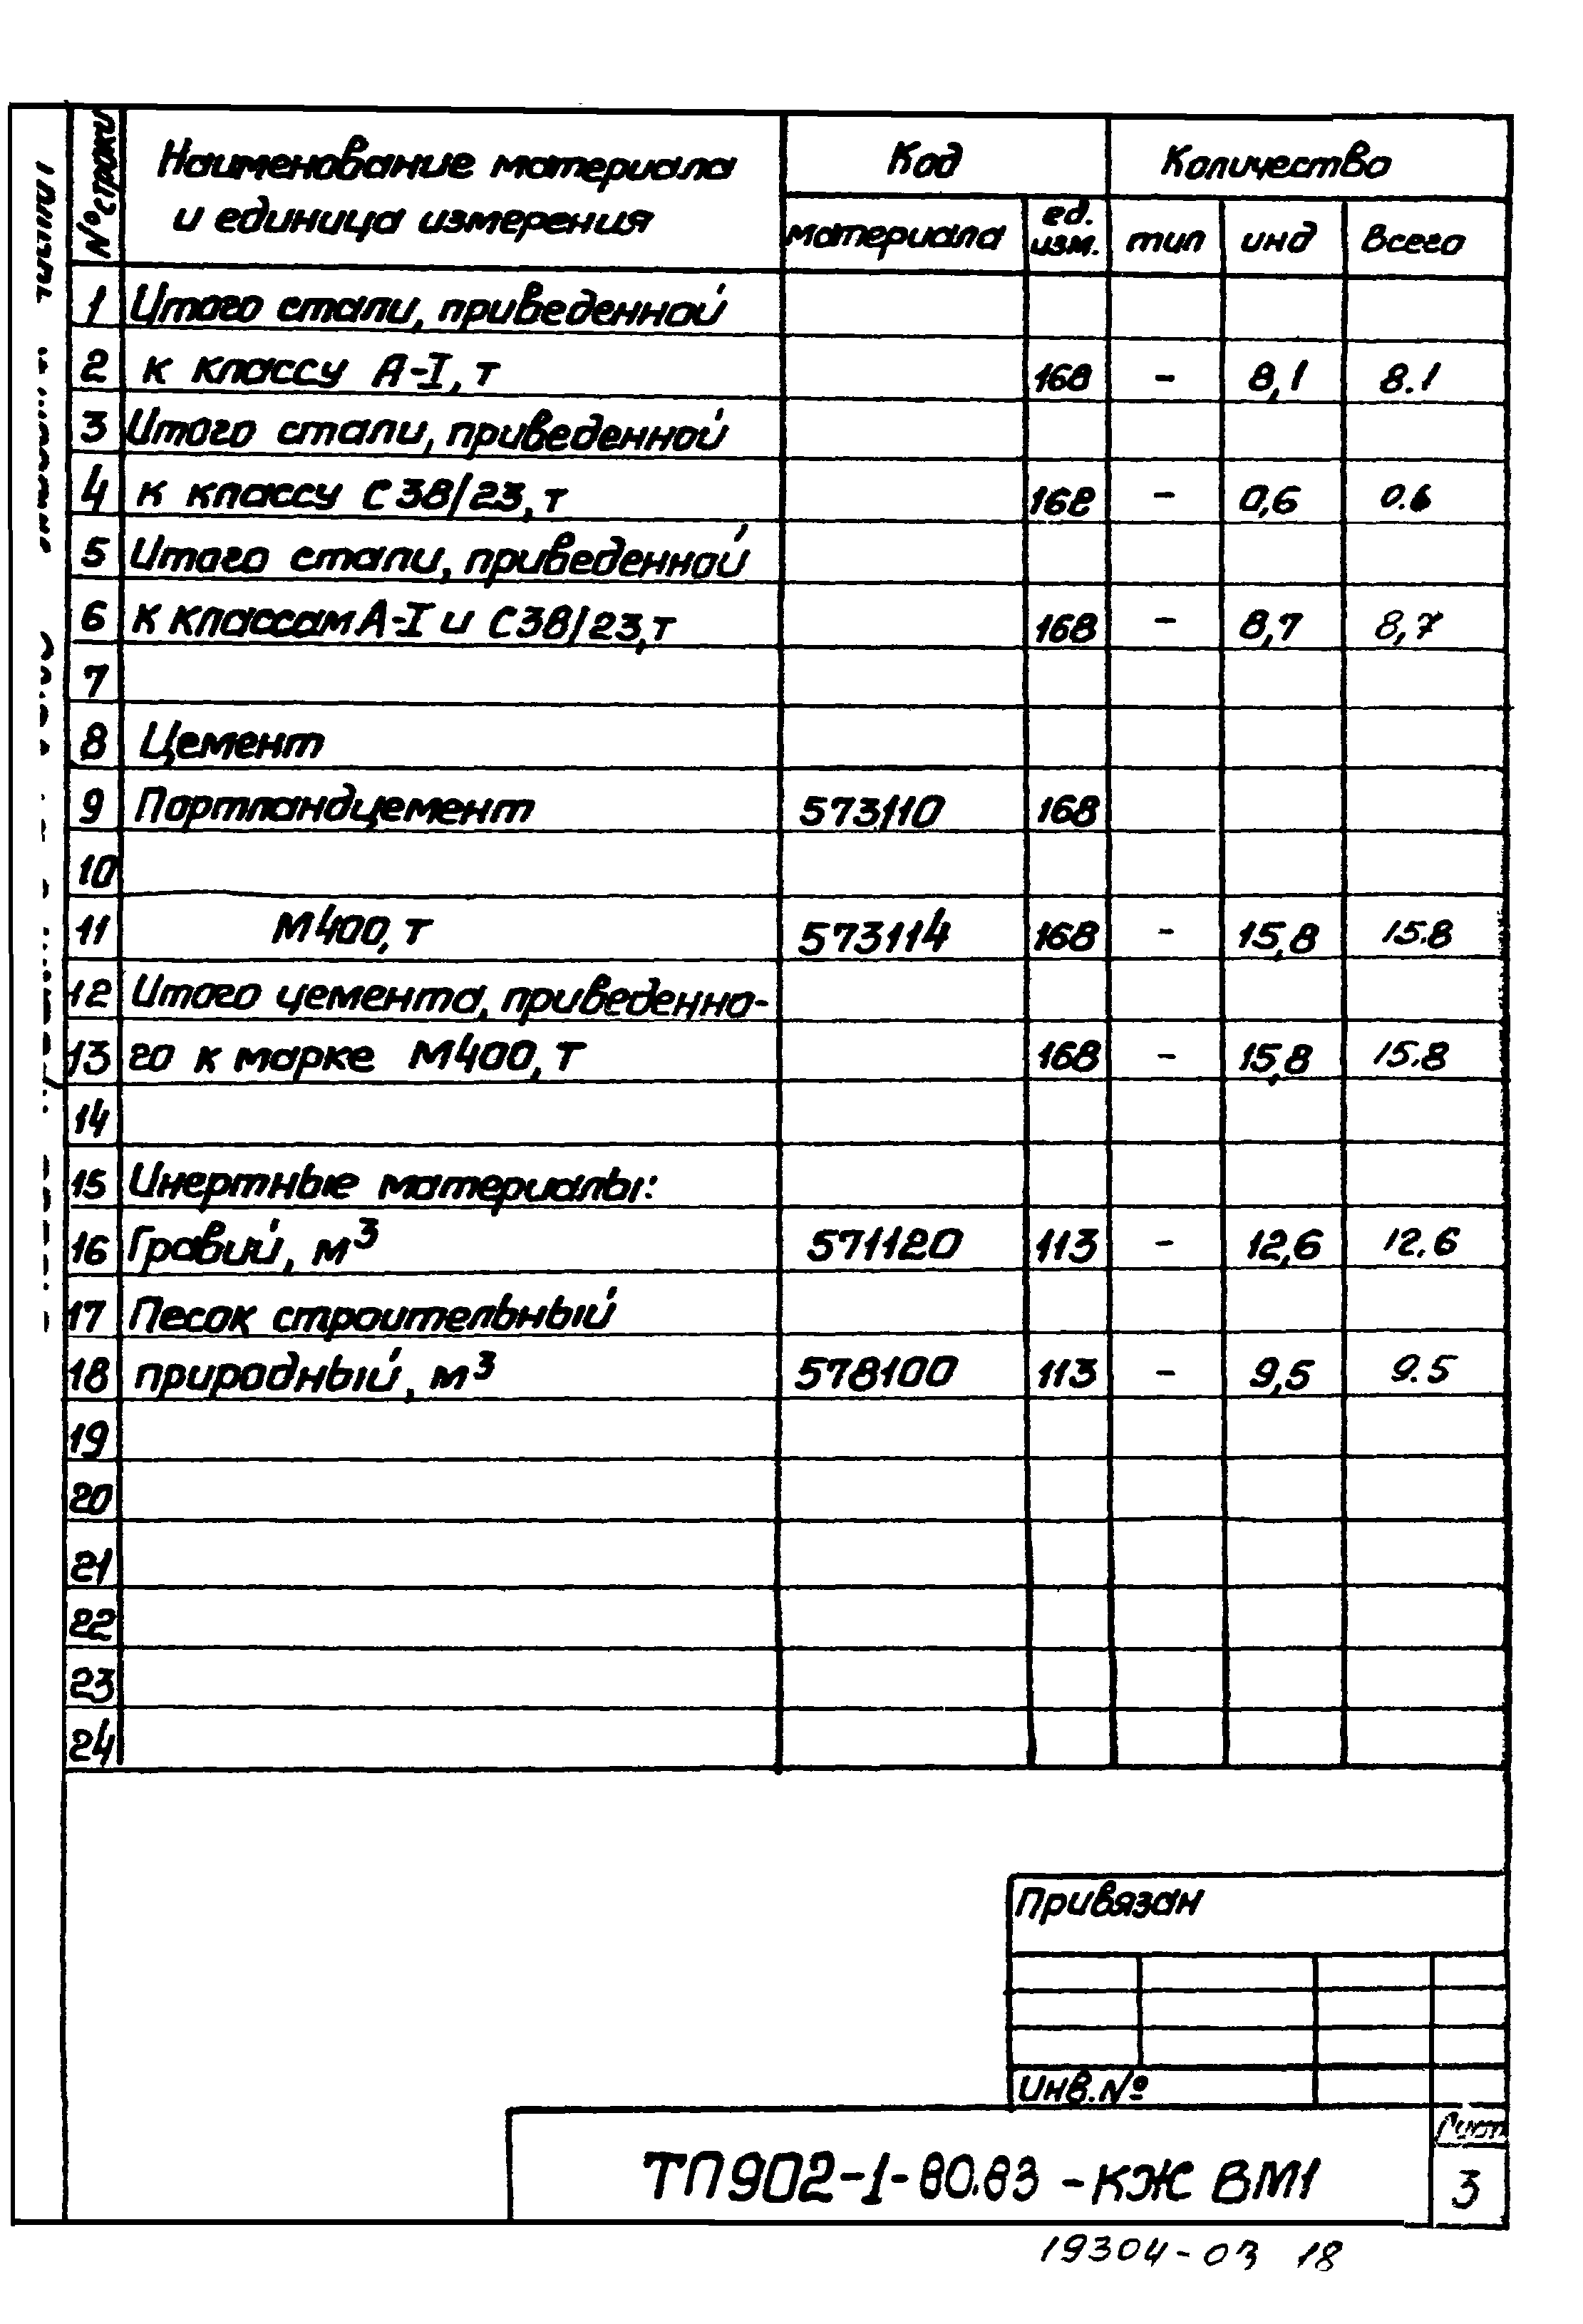 № строки Наименование материала и единица измерения Код Количество
материала ед. изм. тип инд всего
1 Итого стали, приведенной
2 к классу А-I, т 168 - 8,1 8.1
3 Итого стали, приведенной
4 к классу С38/23, т 168 - 0,6 0.6
5 Итого стали, приведенной
6 к классам А-I и С38/23, т 168 - 8,7 8,7
7
8 Цемент
9 Портландцемент 573110 168
10
11 М400, т 573114 168 - 15,8 15.8
12 Итого цемента, приведенно-
13 го к марке М400, т 168 - 15,8 15.8
14
15 Инертные материалы:
16 Гравий, м³ 571120 113 - 12,6 12.6
17 Песок строительный
18 природный, м³ 578100 113 - 9,5 9.5
19
20
21
22
23
24
Привязан
Инв.№
Лист
ТП902-1-80.83 -КЖ ВМ1 3
19304-03 18